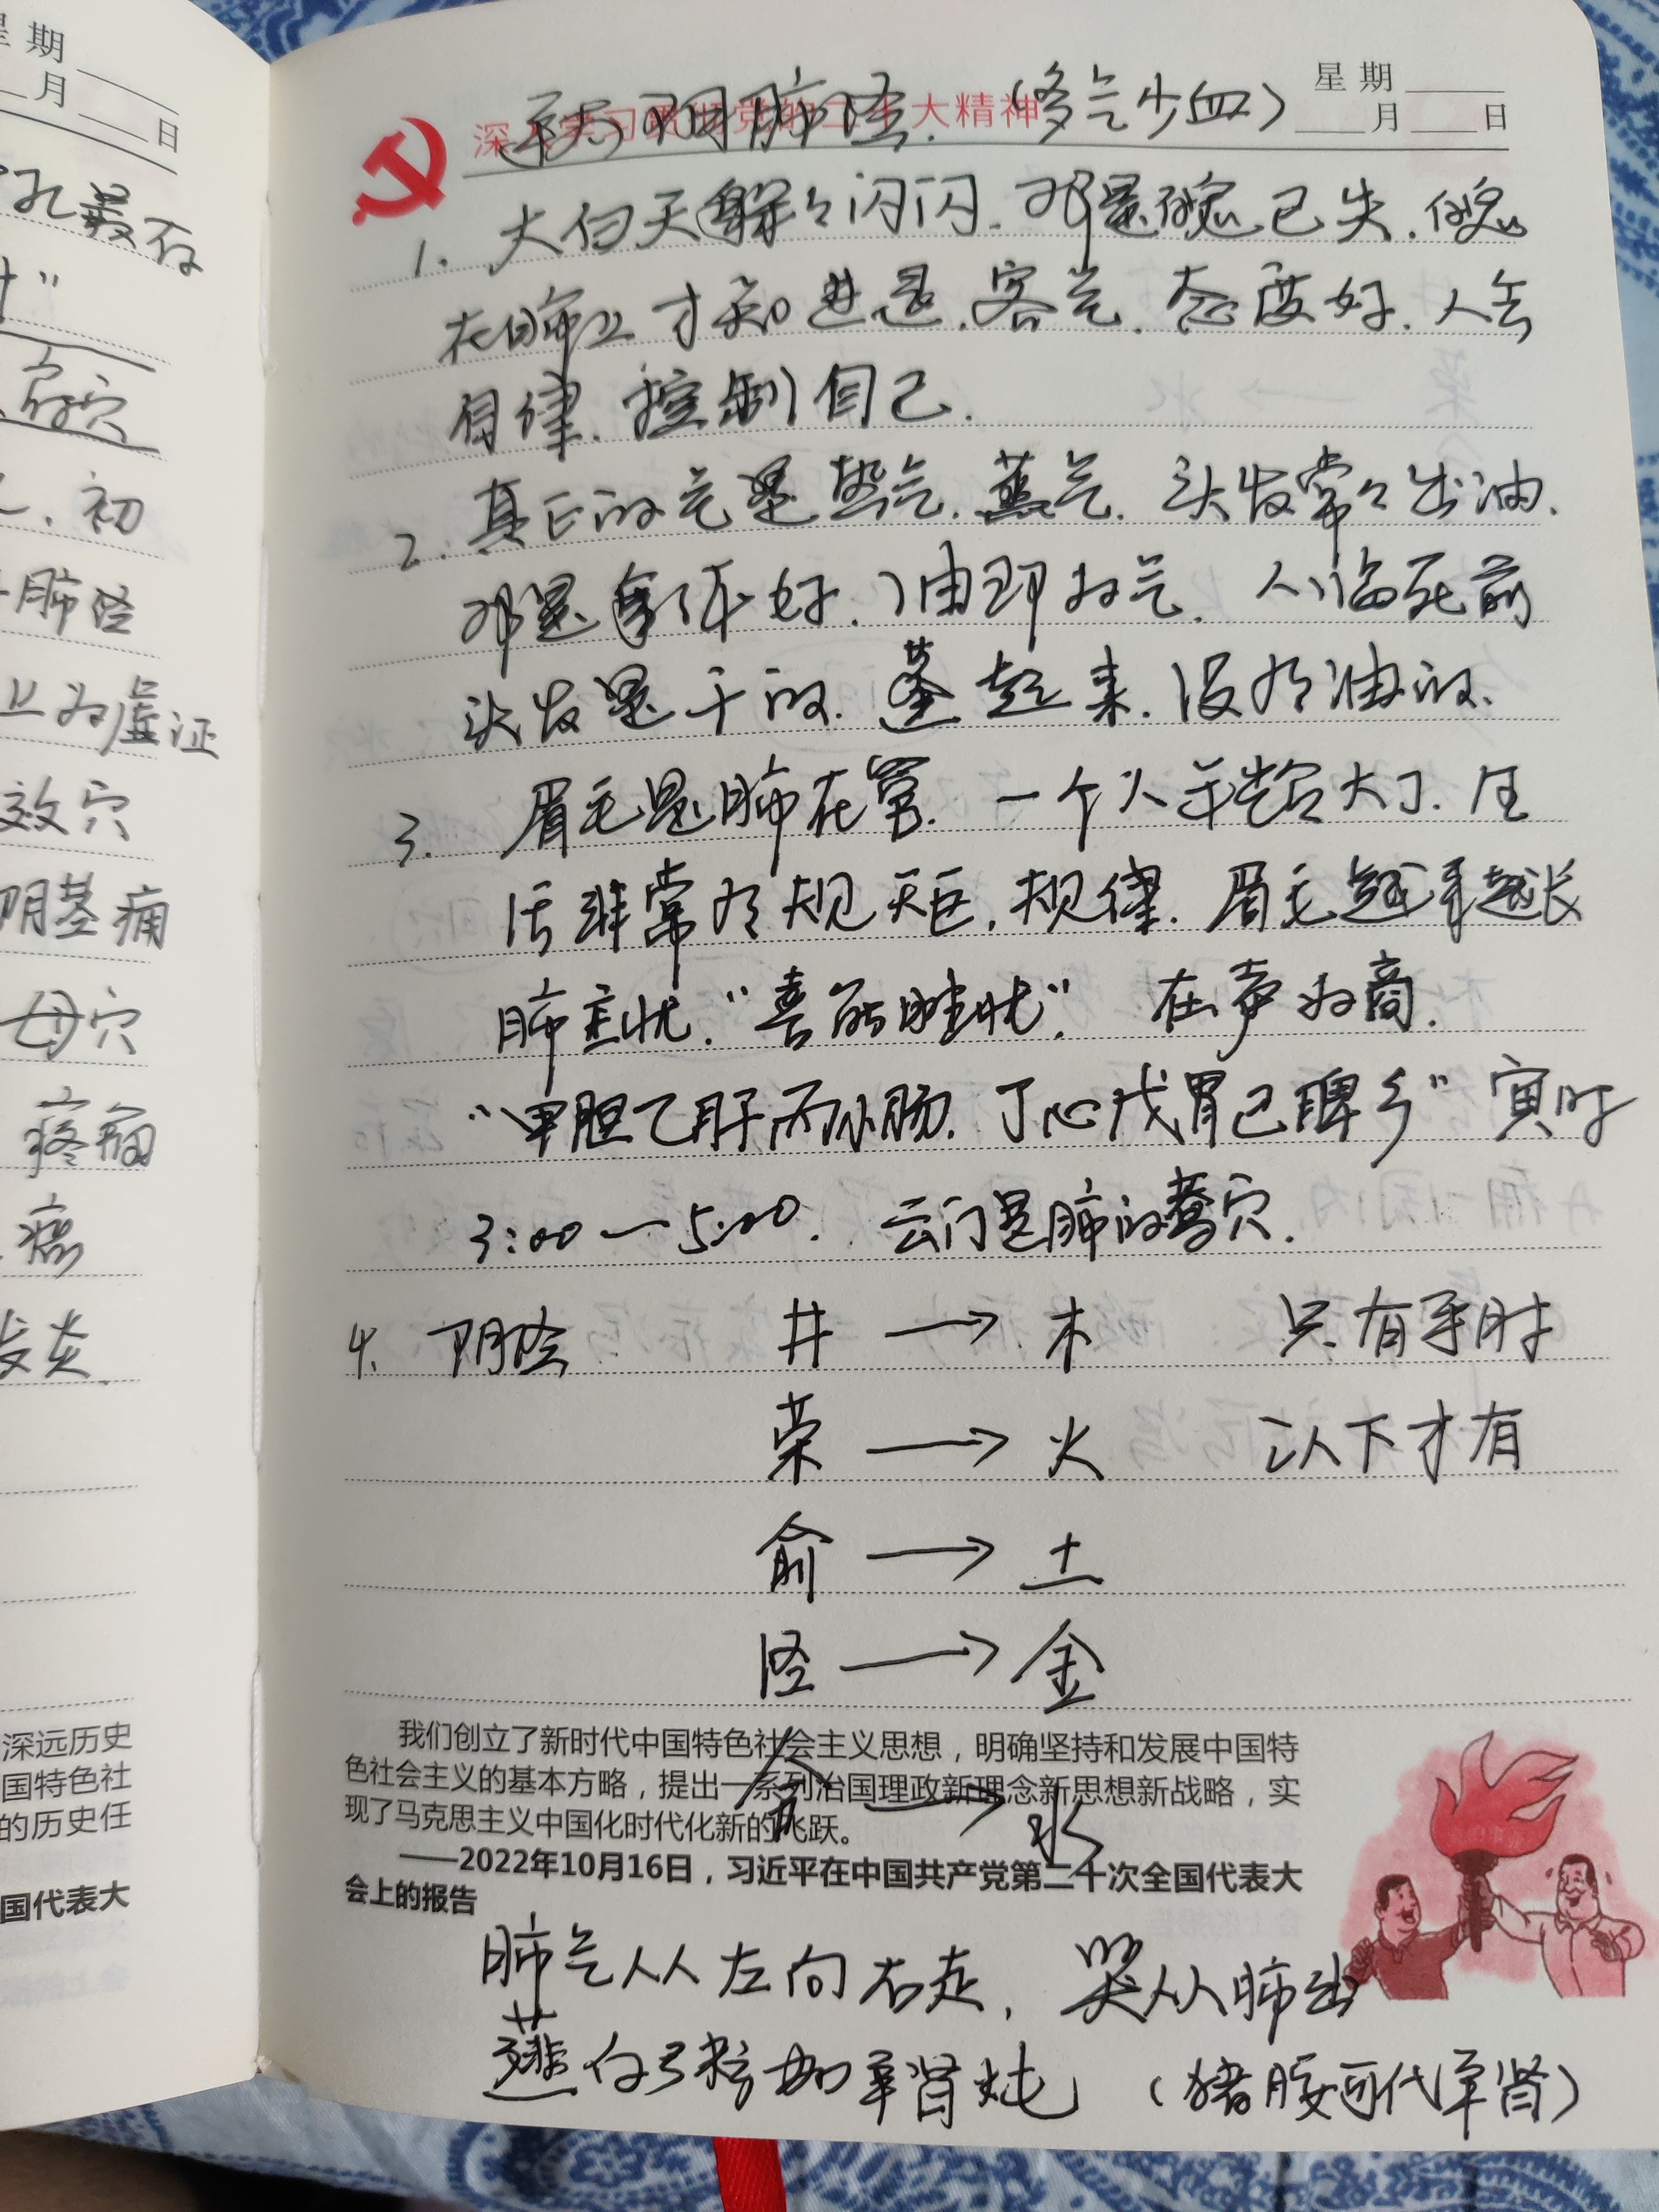 星期
月
日
孔最有
"
穴
初
肺经
为虚证
效穴
阴茎痛
母穴
疼痛
炎
深远历史
国特色社
的历史任
国代表大
星期
月 日
深入学习贯彻党的二十大精神
手太阴肺经.(多气少血)
1. 大白天躲々闪闪.那是魄已失.魄
在肺上才知进退.客气.态度好.人会
自律.控制自己.
2. 真正的气是热气.蒸气.头发常々出油.
那是身体好.油即为气.人临死前
头发是干的.蓬起来.没有油的.
3. 眉毛是肺在管.一个人年龄大了.生
活非常有规矩.规律.眉毛越来越长
肺主忧."喜能胜忧".在声为商.
"甲胆乙肝丙小肠.丁心戊胃己脾乡"寅时
3:00—5:00.云门是肺的募穴.
4. 阴经 井→木 只有手肘
荣→火 以下才有
俞→土
经→金
合→水
我们创立了新时代中国特色社会主义思想，明确坚持和发展中国特
色社会主义的基本方略，提出一系列治国理政新理念新思想新战略，实
现了马克思主义中国化时代化新的飞跃。
——2022年10月16日，习近平在中国共产党第二十次全国代表大
会上的报告
肺气从左向右走，哭从肺出
薤白3棵加羊肾炖（猪腰可代羊肾）